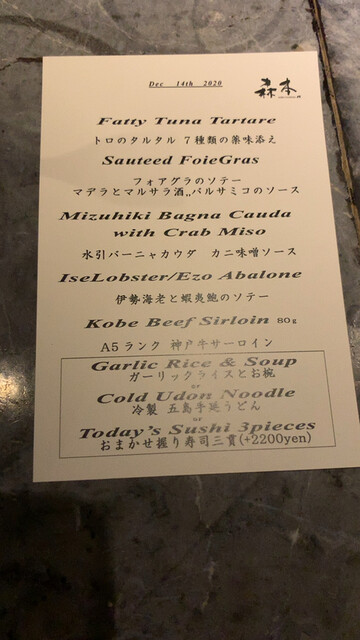 Dec 14th 2020
森本
Fatty Tuna Tartare
トロのタルタル 7種類の薬味添え
Sauteed FoieGras
フォアグラのソテー
マデラとマルサラ酒,,バルサミコのソース
Mizuhiki Bagna Cauda
with Crab Miso
水引バーニャカウダ カニ味噌ソース
IseLobster/Ezo Abalone
伊勢海老と蝦夷鮑のソテー
Kobe Beef Sirloin 80g
A5ランク 神戸牛サーロイン
Garlic Rice & Soup
ガーリックライスとお椀
or
Cold Udon Noodle
冷製 五島手延うどん
or
Today's Sushi 3pieces
おまかせ握り寿司三貫(+2200yen)